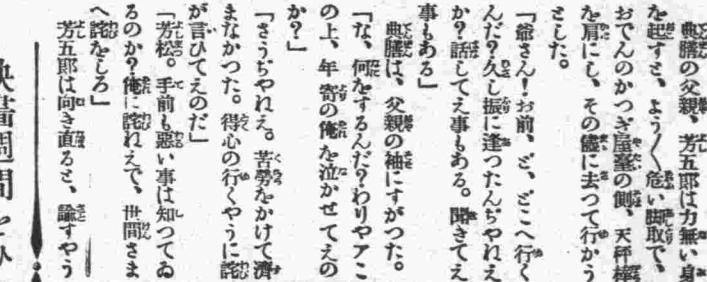 典膳の父親、芳五郎は力無い身
を起すと、よう〱危い脚取で、
おでんのかつぎ屋臺の側、天秤棒
を肩にし、その儘に去つて行かう
とした。
「爺さん！お前、ど、どこへ行く
んだ？久し振に逢つたんぢやれえ
か？話してえ事もある。聞きてえ
事もある」
典膳は、父親の袖にすがつた。
「な、何をするんだ？わりやアこ
の上、年寄の俺を泣かせてえの
か？」
「さうぢやれえ。苦勞をかけて濟
まなかつた。得心の行くやうに詫
が言ひてえのだ」
「芳松。手前も惡い事は知つてゐ
るのか？俺に詫れえで、世間さま
へ詫をしろ」
芳五郎は向き直ると、諭すやう
映畫週間